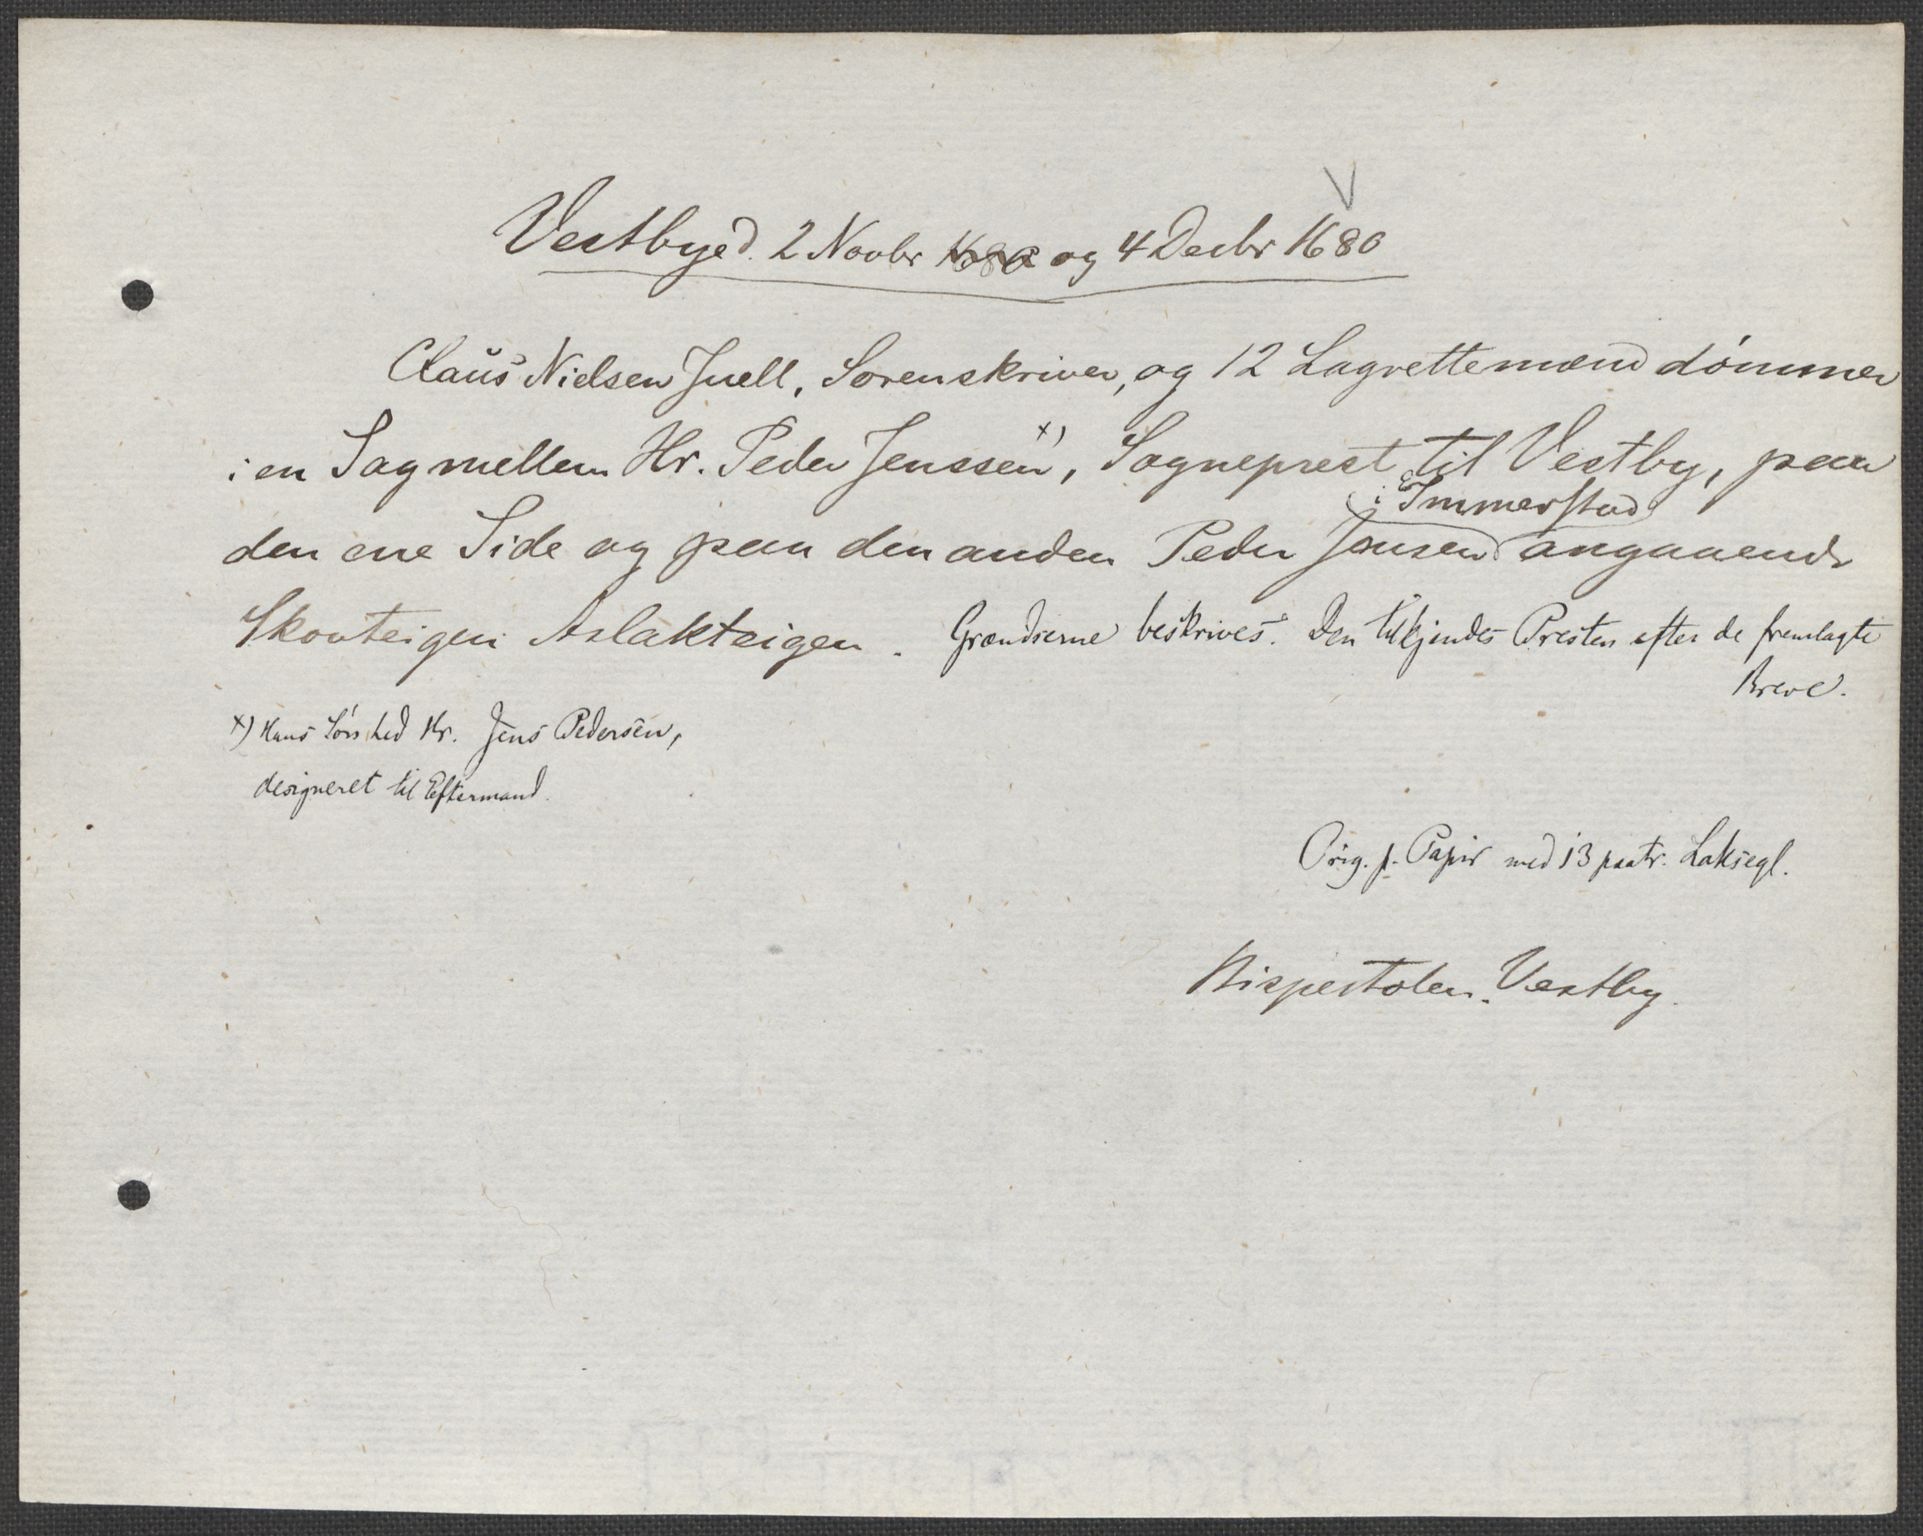 V
Vestbye d. 2 Novbr 1680 og 4 Decbr 1680
Claus Nielsen Juell, Sorenskriver, og 12 Lagrettemænd dømmer
i en Sag mellem Hr. Peder Jenssen x), Sogneprest til Vestby, paa
i Immerstad
den ene Side og paa den anden Peder Jensen angaaende
Skovteigen Aslakteigen. Grændserne beskrives. Den tilkjendes Presten efter de fremlagte
Breve.
x) Hans Søn hed Hr. Jens Pedersen,
designeret til Eftermand.
Orig. p. Papir med 13 paatr. Laksegl.
Bispestolen. Vestby.